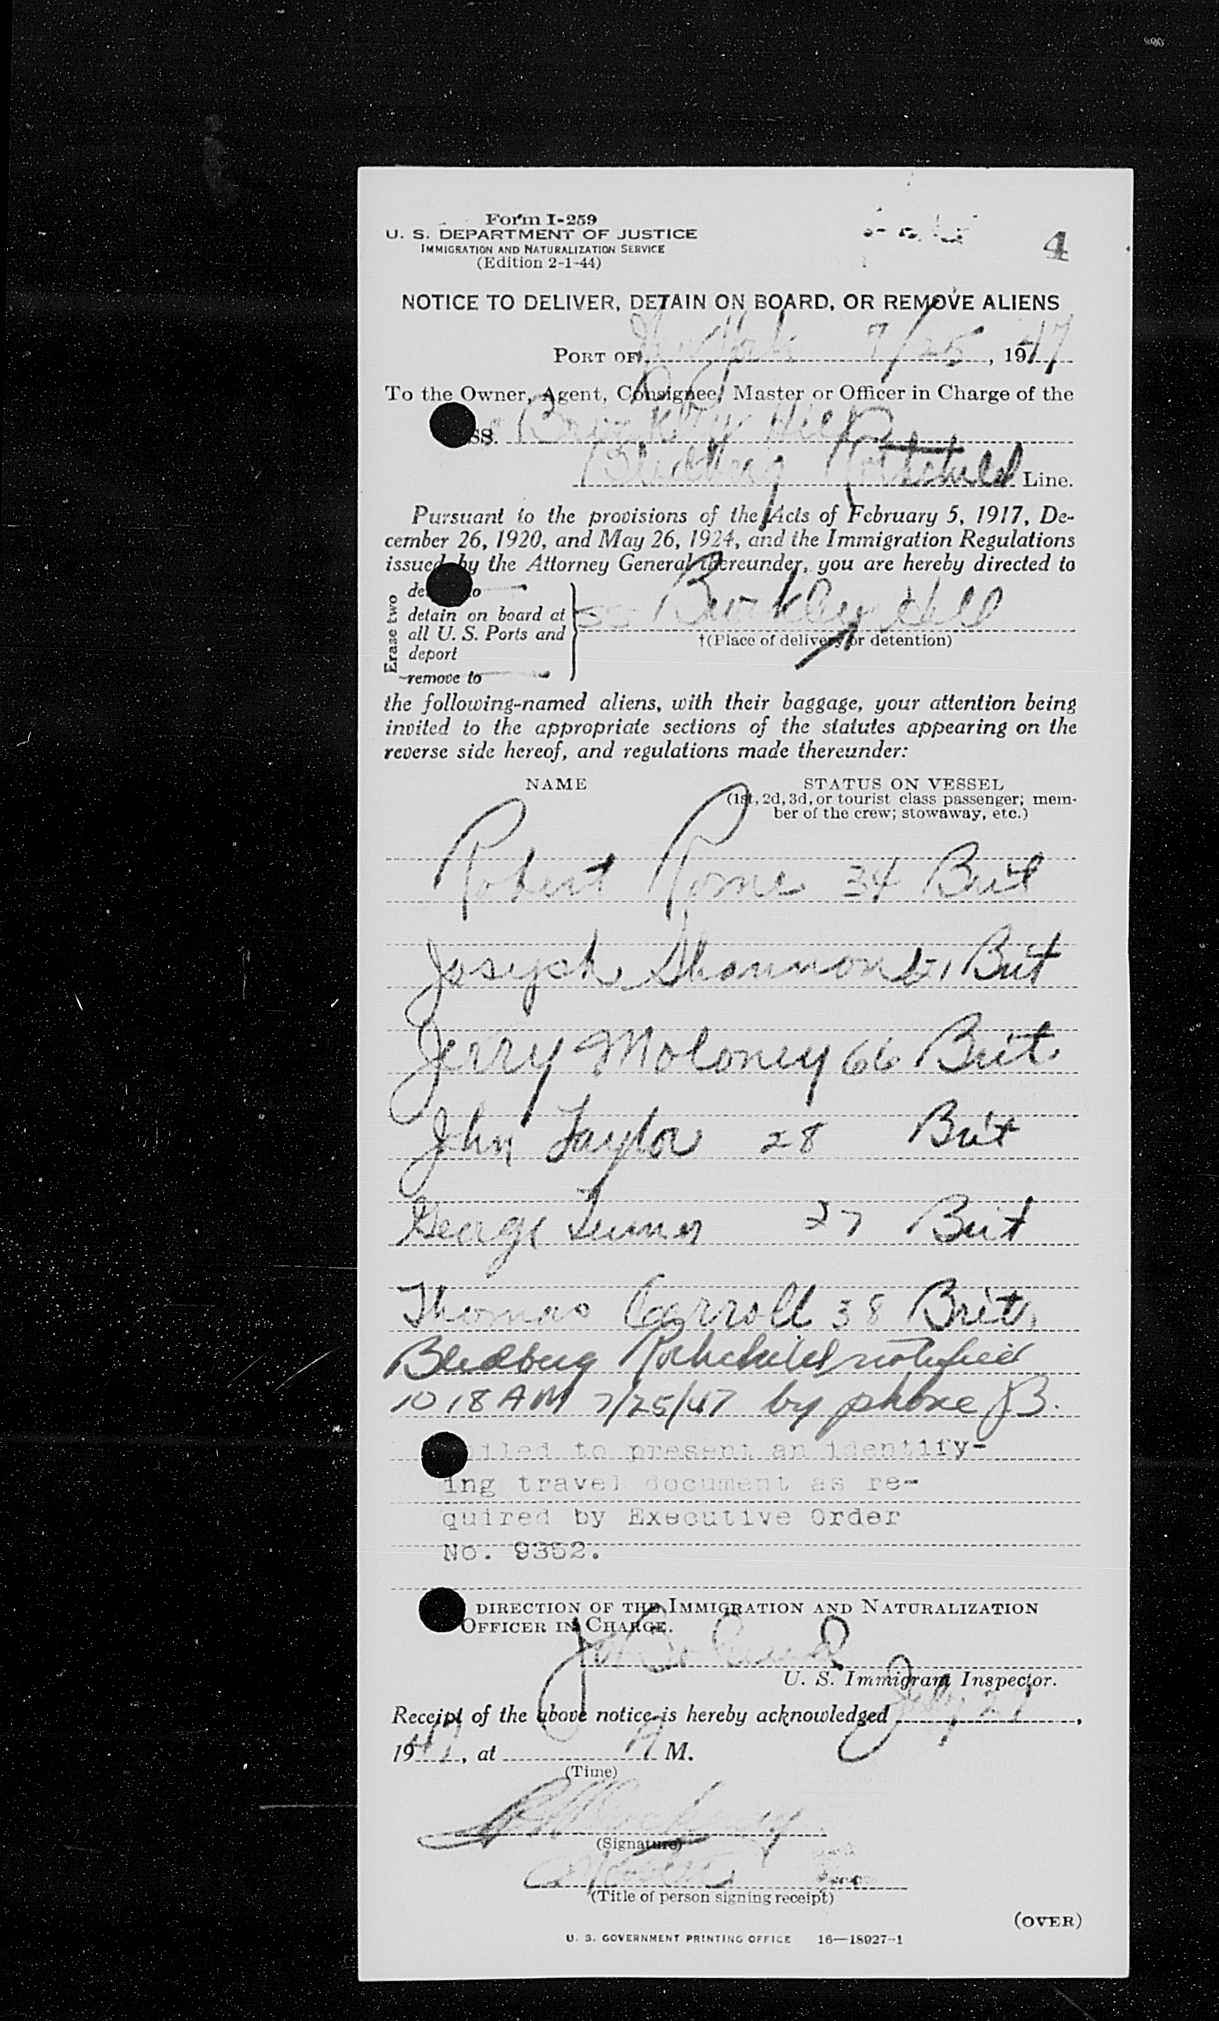 Form I-259
U. S. DEPARTMENT OF JUSTICE
IMMIGRATION AND NATURALIZATION SERVICE
(Edition 2-1-44)
4
NOTICE TO DELIVER, DETAIN ON BOARD, OR REMOVE ALIENS
PORT OF New York 7/25, 1947
To the Owner, Agent, Consignee, Master or Officer in Charge of the
SS. Hill
Rothchild Line.
Pursuant to the provisions of the Acts of February 5, 1917, De-
cember 26, 1920, and May 26, 1924, and the Immigration Regulations
issued by the Attorney General thereunder, you are hereby directed to
Erase two
detain on board at
all U. S. Ports and
deport
remove to
SS Hill
†(Place of delivery or detention)
the following-named aliens, with their baggage, your attention being
invited to the appropriate sections of the statutes appearing on the
reverse side hereof, and regulations made thereunder:
NAME STATUS ON VESSEL
(1st, 2d, 3d, or tourist class passenger; mem-
ber of the crew; stowaway, etc.)
Robert 34 Brit
Joseph Shannon Brit
Jerry Moloney 66 Brit
John Taylor 28 Brit
George 27 Brit
Thomas Carroll 38 Brit.
Bledberg Rothchild notified
10 18 AM 7/25/47 by phone JB.
iled to present an identify-
ing travel document as re-
quired by Executive Order
No. 9352.
DIRECTION OF THE IMMIGRATION AND NATURALIZATION
OFFICER IN CHARGE.
U. S. Immigrant Inspector.
Receipt of the above notice is hereby acknowledged July 27,
1947, at A M.
(Time)
(Signature)
(Title of person signing receipt)
(OVER)
U. S. GOVERNMENT PRINTING OFFICE 16—18027-1